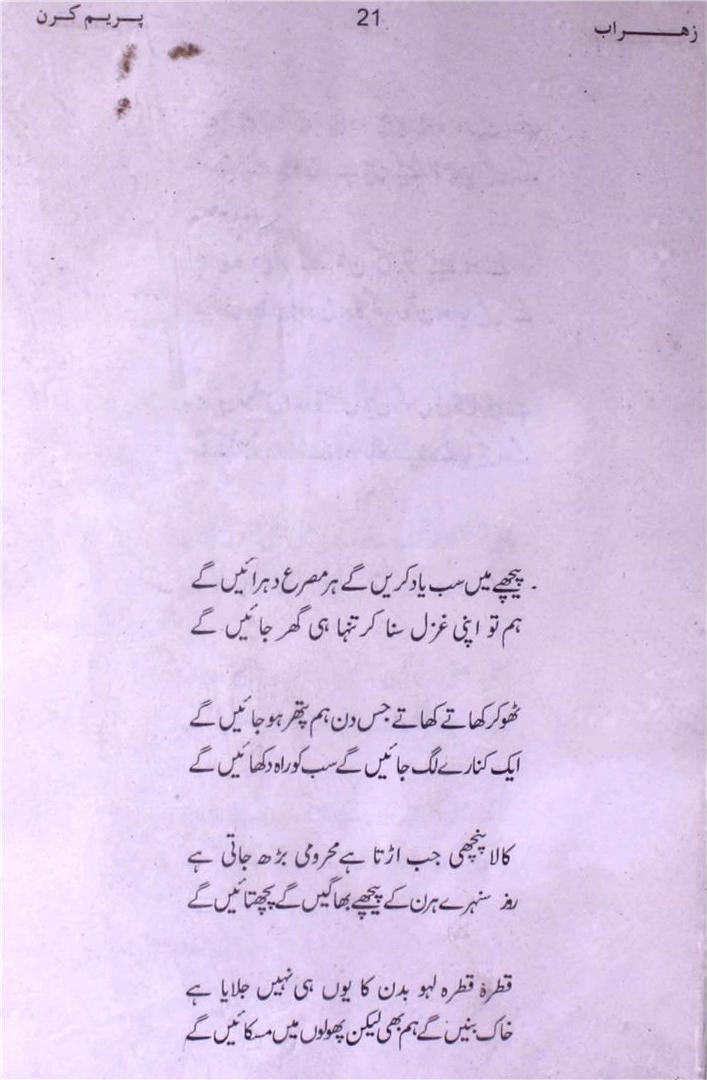 زهراب
21
پریم کرن
پیچھے میں سب یاد کریں گے ہر مصرع دہرائیں گے
ہم تو اپنی غزل سنا کر تنہا ہی گھر جائیں گے
ٹھوکر کھاتے کھاتے جس دن ہم پتھر ہو جائیں گے
ایک کنارے لگ جائیں گے سب کو راہ دکھائیں گے
کالا پنچھی جب اڑتا ہے محرومی بڑھ جاتی ہے
روز سنہرے ہرن کے پیچھے بھاگیں گے پچھتائیں گے
قطرۂ قطرہ لہو بدن کا یوں ہی نہیں جلایا ہے
خاک بنیں گے ہم بھی لیکن پھولوں میں مسکائیں گے